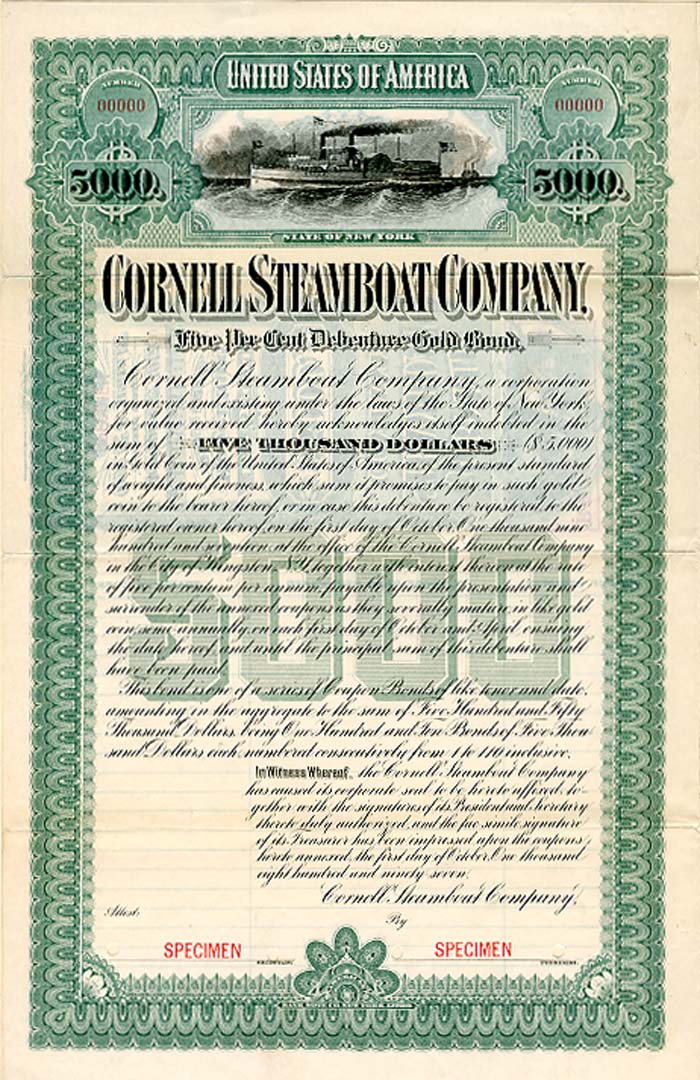 UNITED STATES OF AMERICA
NUMBER
00000
NUMBER
00000
5000.
5000.
STATE OF NEW YORK
CORNELL STEAMBOAT COMPANY,
Five Per Cent Debenture Gold Bond.
Cornell Steamboat Company, a corporation
organized and existing under the laws of the State of New York,
for value received hereby acknowledges itself indebted in the
sum of FIVE THOUSAND DOLLARS ($5,000)
in Gold Coin of the United States of America, of the present standard
of weight and fineness, which sum it promises to pay in such gold
coin to the bearer hereof, or in case this debenture be registered to the
registered owner hereof, on the first day of October, One thousand nine
hundred and seventeen, at the office of the Cornell Steamboat Company
in the City of Kingston N.Y. together with interest thereon at the rate
of five per centum per annum, payable upon the presentation and
surrender of the annexed coupons as they severally mature, in like gold
coin, semi-annually, on each first day of October and April ensuing
the date hereof, and until the principal sum of this debenture shall
have been paid.
5000
This bond is one of a series of Coupon Bonds of like tenor and date,
amounting in the aggregate to the sum of Five Hundred and Fifty
Thousand Dollars, being One Hundred and Ten Bonds of Five Thou-
sand Dollars each, numbered consecutively from 1 to 110 inclusive.
In Witness Whereof, the Cornell Steamboat Company
has caused its corporate seal to be hereto affixed, to-
gether with the signatures of its President and Secretary
thereto duly authorized, and the fac simile signature
of its Treasurer has been impressed upon the coupons
hereto annexed, the first day of October, One thousand
eight hundred and ninety seven.
Cornell Steamboat Company,
Attest:
By
SPECIMEN
SECRETARY.
SPECIMEN
PRESIDENT.